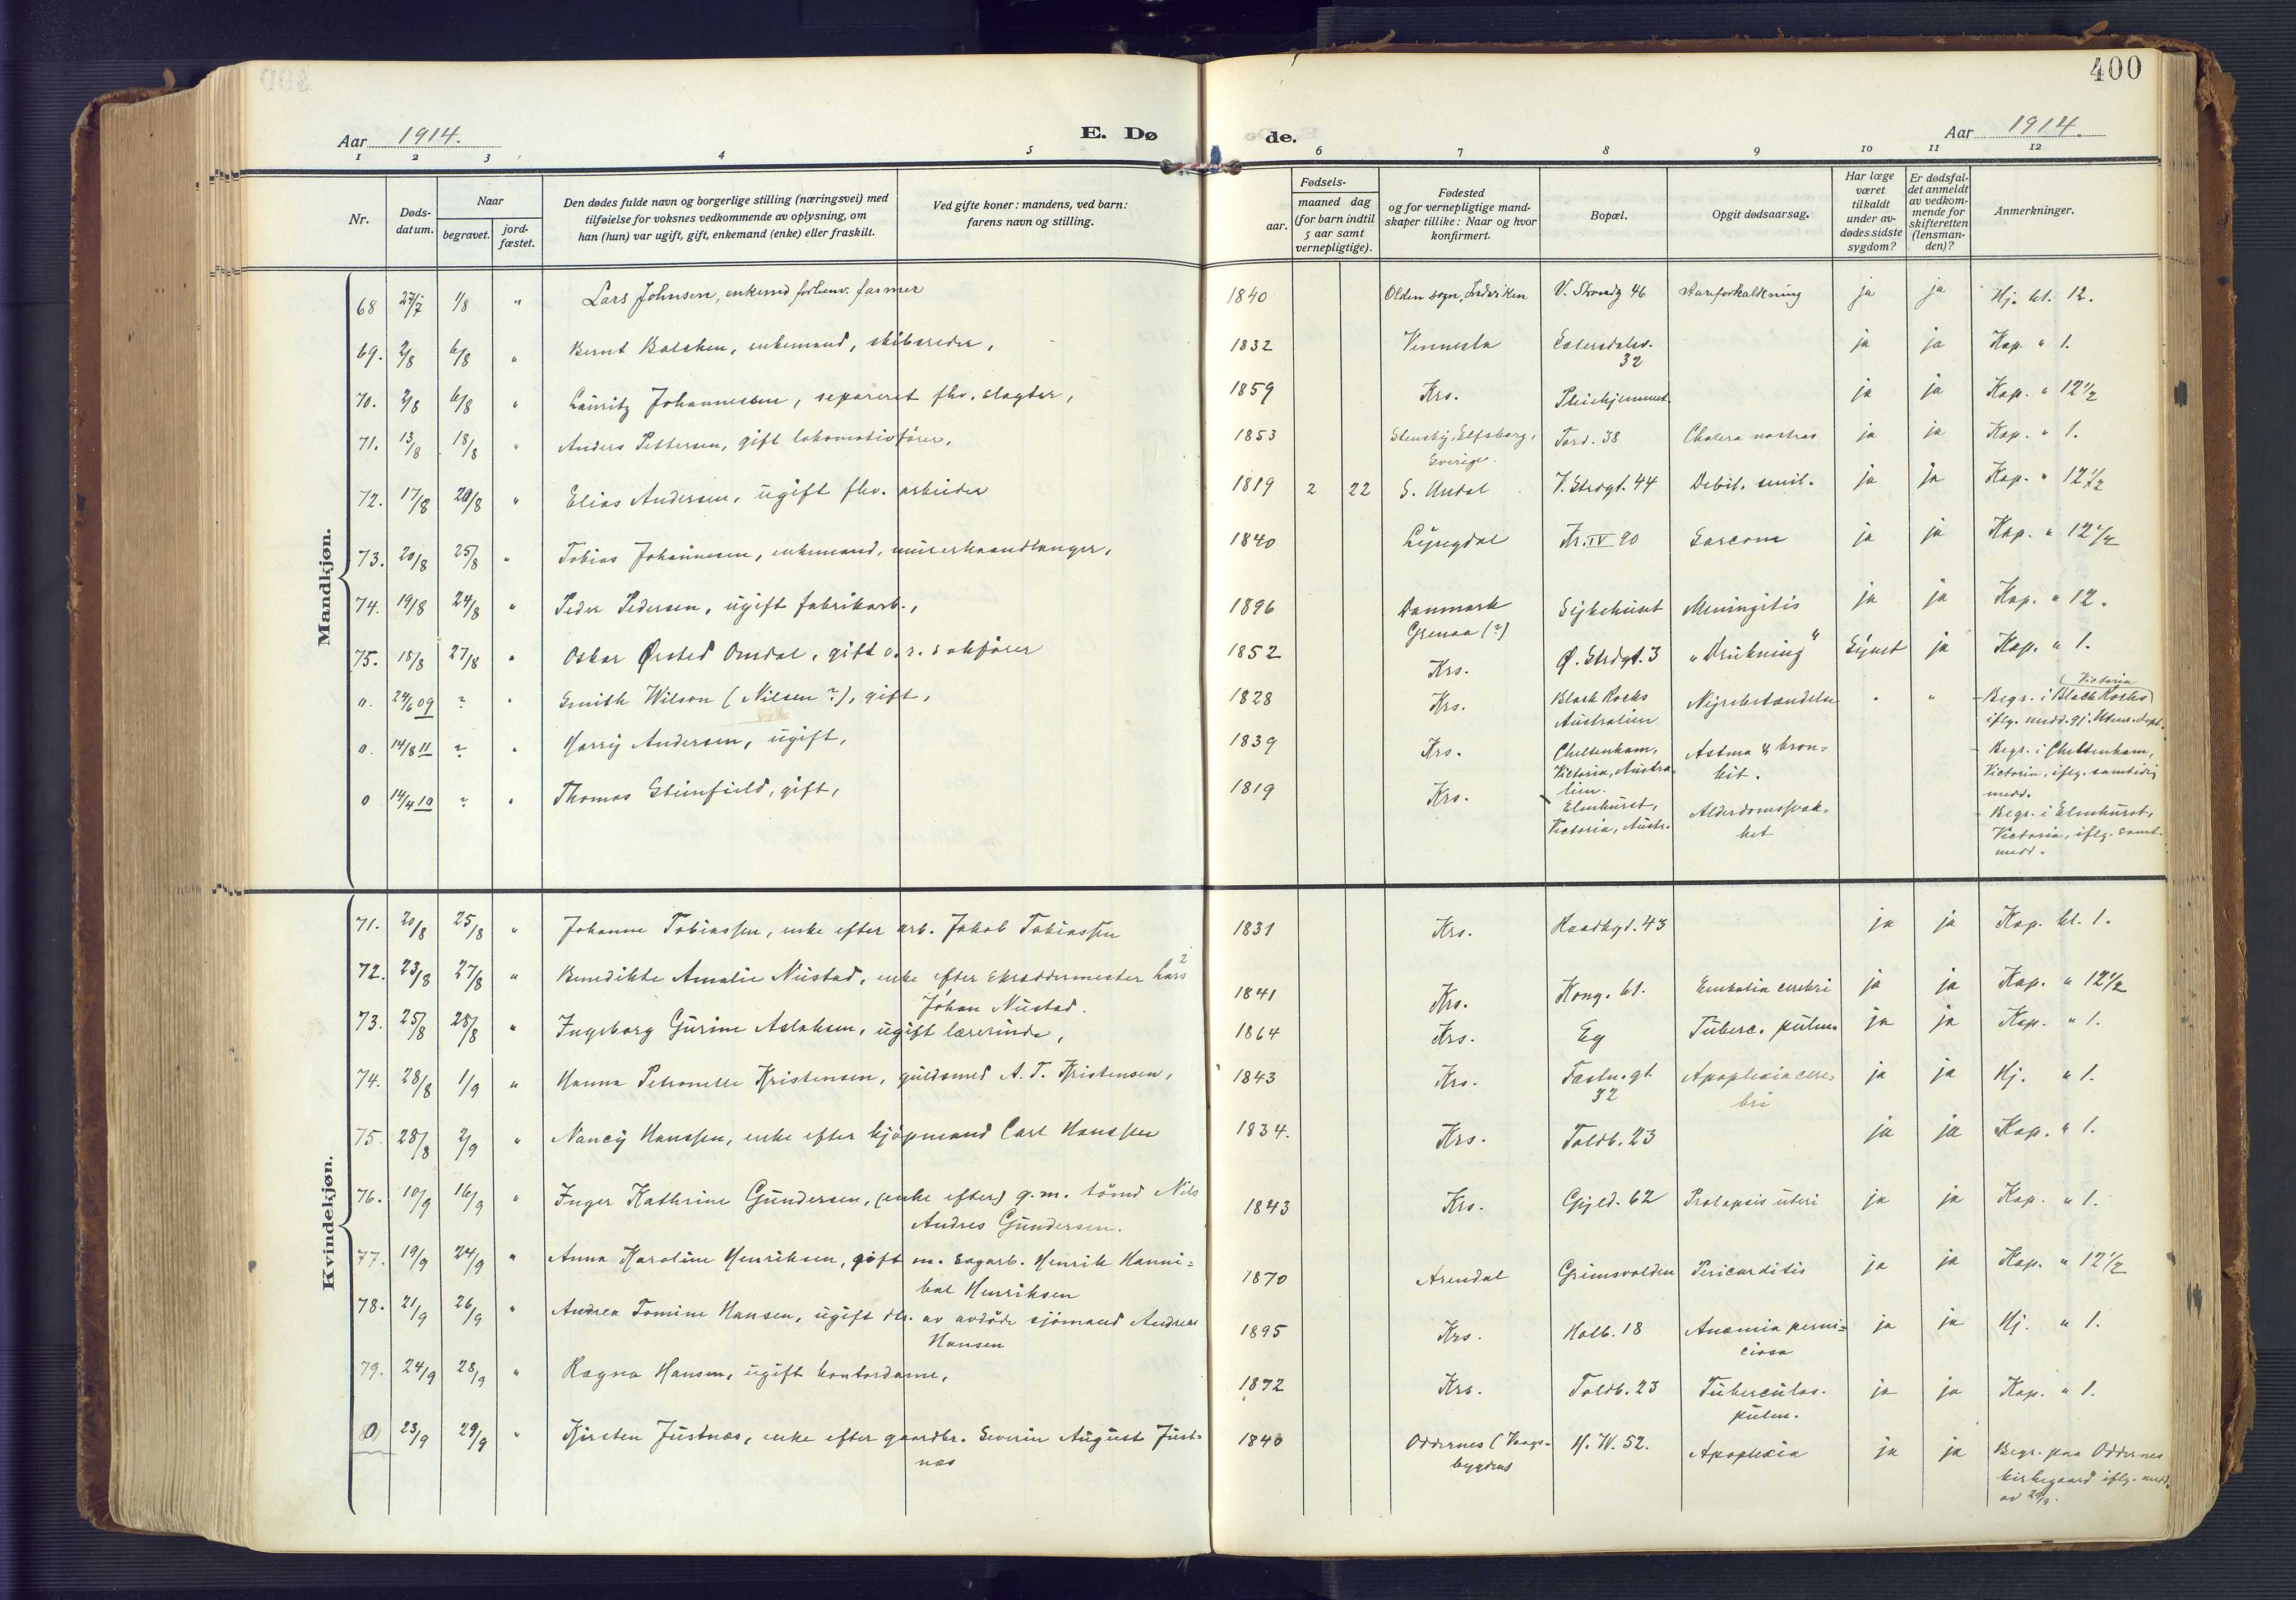 400
Aar 1914.
E. Dø
de.
Aar 1914.
1 2 3 4 5 6 7 8 9 10 11 12
Nr.
Døds-
datum.
Naar
begravet.
jord-
fæstet.
Den dødes fulde navn og borgerlige stilling (næringsvei) med
tilføielse for voksnes vedkommende av oplysning, om
han (hun) var ugift, gift, enkemand (enke) eller fraskilt.
Ved gifte koner: mandens, ved barn:
farens navn og stilling.
Fødsels-
aar.
maaned dag
(for barn indtil
5 aar samt
vernepligtige).
Fødested
og for vernepligtige mand-
skaper tillike: Naar og hvor
konfirmert.
Bopæl.
Opgit dødsaarsag.
Har læge
været
tilkaldt
under av-
dødes sidste
sygdom?
Er dødsfal-
det anmeldt
av vedkom-
mende for
skifteretten
(lensman-
den)?
Anmerkninger.
Mandkjøn.
68 27/7 1/8 " Lars Johnsen, enkemd forhenv. farmer 1840 Olden sogn, Indviken V. Strandg 46 Aareforkalkning ja ja Hj. kl. 12.
69. 2/8 6/8 " Bernt Balchen, enkemand, skibsreder, 1832 Vennesla Sætersdalsv. 32 ja ja Kap. " 1.
70. 2/8 6/8 " Lauritz Johannessen, separeret fhv. slagter, 1859 Krs. Pleiehjemmet. ja ja Kap. " 12 1/2
71. 13/8 18/8 " Anders Pettersen, gift lokomotivfører, 1853 Stensby, Elfsborg, Sverige. Tord. 38 Cholera nostras ja ja Kap. " 1.
72. 17/8 20/8 " Elias Andersen, ugift fhv. arbeider 1819 2 22 S. Undal V. Strdgt. 44 Debil. senil. ja ja Kap. " 12 1/2
73. 20/8 25/8 " Tobias Johannesen, enkemand, murerhaandlanger, 1840 Lyngdal Kr. IV 20 Sarcom ja ja Kap. " 12 1/2
74. 19/8 24/8 " Peder Pedersen, ugift fabrikarb., 1896 Danmark Grenaa (?) Sykehuset Meningitis ja ja Kap. " 12.
75. 18/8 27/8 " Oskar Ørsted Omdal, gift o.r. sakfører 1852 Krs. Ø. Strdgt. 3 "Drukning" Synet ja Kap. " 1.
0. 24/6 09 ? " Smith Wilson (Nilsen?), gift, 1828 Krs. Black Rocks Australien Nyrebetændelse " " Begr. i Black Rocks (Victoria) iflg. medd. gj. Utenr. dept.
0. 14/8 11 ? " Harry Andersen, ugift, 1839 Krs. Cheltenham, Victoria, Australien. Astma & bronkit. Begr. i Cheltenham, Victoria, iflg. samtidig medd.
0 14/4 10 ? " Thomas Steinfield, gift, 1819 Krs. Elmhurst, Victoria, Austr. Alderdomssvakhet Begr. i Elmhurst, Victoria, iflg. samt. medd.
Kvindekjøn.
71. 20/8 25/8 " Johanne Tobiassen, enke efter arb. Jakob Tobiassen 1831 Krs. Raadhgd. 43 ja ja Kap. kl. 1.
72. 23/8 27/8 " Benedikte Amalie Nustad, enke efter skræddermester Lars Johan Nustad. 1841 Krs. Kong. 61. cerebri ja ja Kap. " 12 1/2
73. 25/8 28/8 " Ingeborg Gurine Aslaksen, ugift lærerinde, 1864 Krs. Eg Tuberc. pulm. ja ja Kap. " 1.
74. 28/8 1/9 " Hanna Petronelle Kristensen, guldsmed A. T. Kristensen, 1843 Krs. Fæstn.gt. 32 Apoplexia cerebri ja ja Hj. " 1.
75. 28/8 2/9 " Nancy Hanssen, enke efter kjøpmand Carl Hanssen 1834. Krs. Toldb. 23 ja ja Kap. " 1.
76. 10/9 16/9 " Inger Kathrine Gundersen, (enke efter) g.m. tømd Nils Andres Gundersen. 1843 Krs. Gyld. 62 Prolapsis uteri ja ja Kap. " 1.
77. 19/9 24/9 " Anna Karoline Henriksen, gift m. sagarb. Henrik Hannibal Henriksen 1870 Arendal Grimsvolden Pericarditis ja ja Kap. " 12 1/2
78. 21/9 26/9 " Andrea Tomine Hansen, ugift dtr. av avdøde sjømand Andreas Hansen 1895 Krs. Holb. 18 Anæmia perniciosa ja ja Hj. " 1.
79. 24/9 28/9 " Ragna Hansen, ugift kontordame, 1872 Krs. Toldb. 23 Tuberculos. pulm. ja ja Kap. " 1.
0 23/9 29/9 " Kirsten Justnæs, enke efter gaardbr. Severin August Justnæs 1840 Oddernes (Vaagsbygden) H. W. 52. Apoplexia ja ja Begr. paa Oddernes kirkegaard iflg. medd. av 29/9.